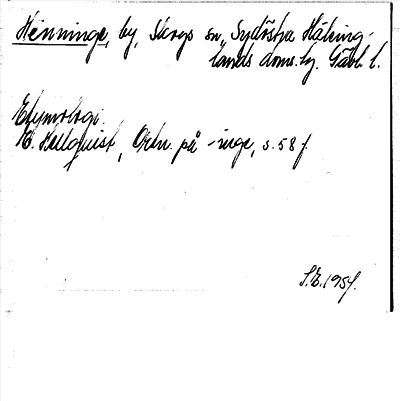 Henninge, by, Skogs sn, Sydöstra Hälsing-
lands doms.bg. Gävl. l.
Etymologi.
E. Hellquist, Ortn. på -inge, s. 58 f
S.E. 1954.